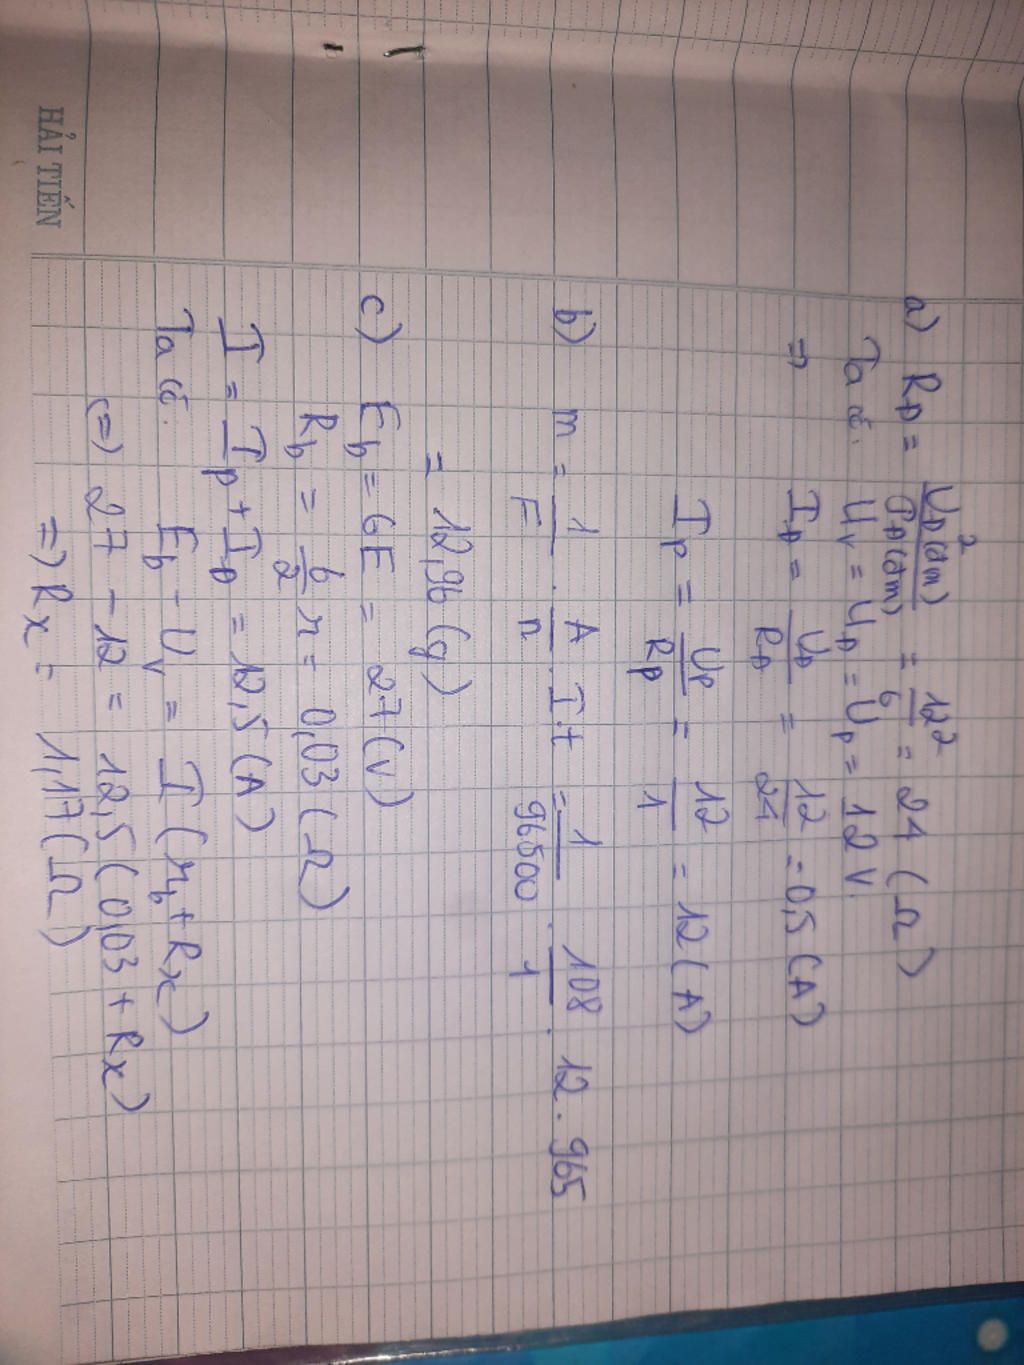 a) R_Đ = U_Đ(đm)² / P_Đ(đm) = 12² / 6 = 24 (Ω)
Ta có: U_V = U_Đ = U_P = 12 V.
=> I_Đ = U_Đ / R_Đ = 12 / 24 = 0,5 (A)
I_P = U_P / R_P = 12 / 1 = 12 (A)
b) m = 1 / F . A / n . I.t = 1 / 96500 . 108 / 1 . 12 . 965
= 12,96 (g)
c) E_b = 6E = 27 (V)
R_b = 6 / 2 r = 0,03 (Ω)
I = I_P + I_Đ = 12,5 (A)
Ta có: E_b - U_V = I (r_b + R_x)
(=) 27 - 12 = 12,5 (0,03 + R_x)
=) R_x = 1,17 (Ω)
HẢI TIẾN